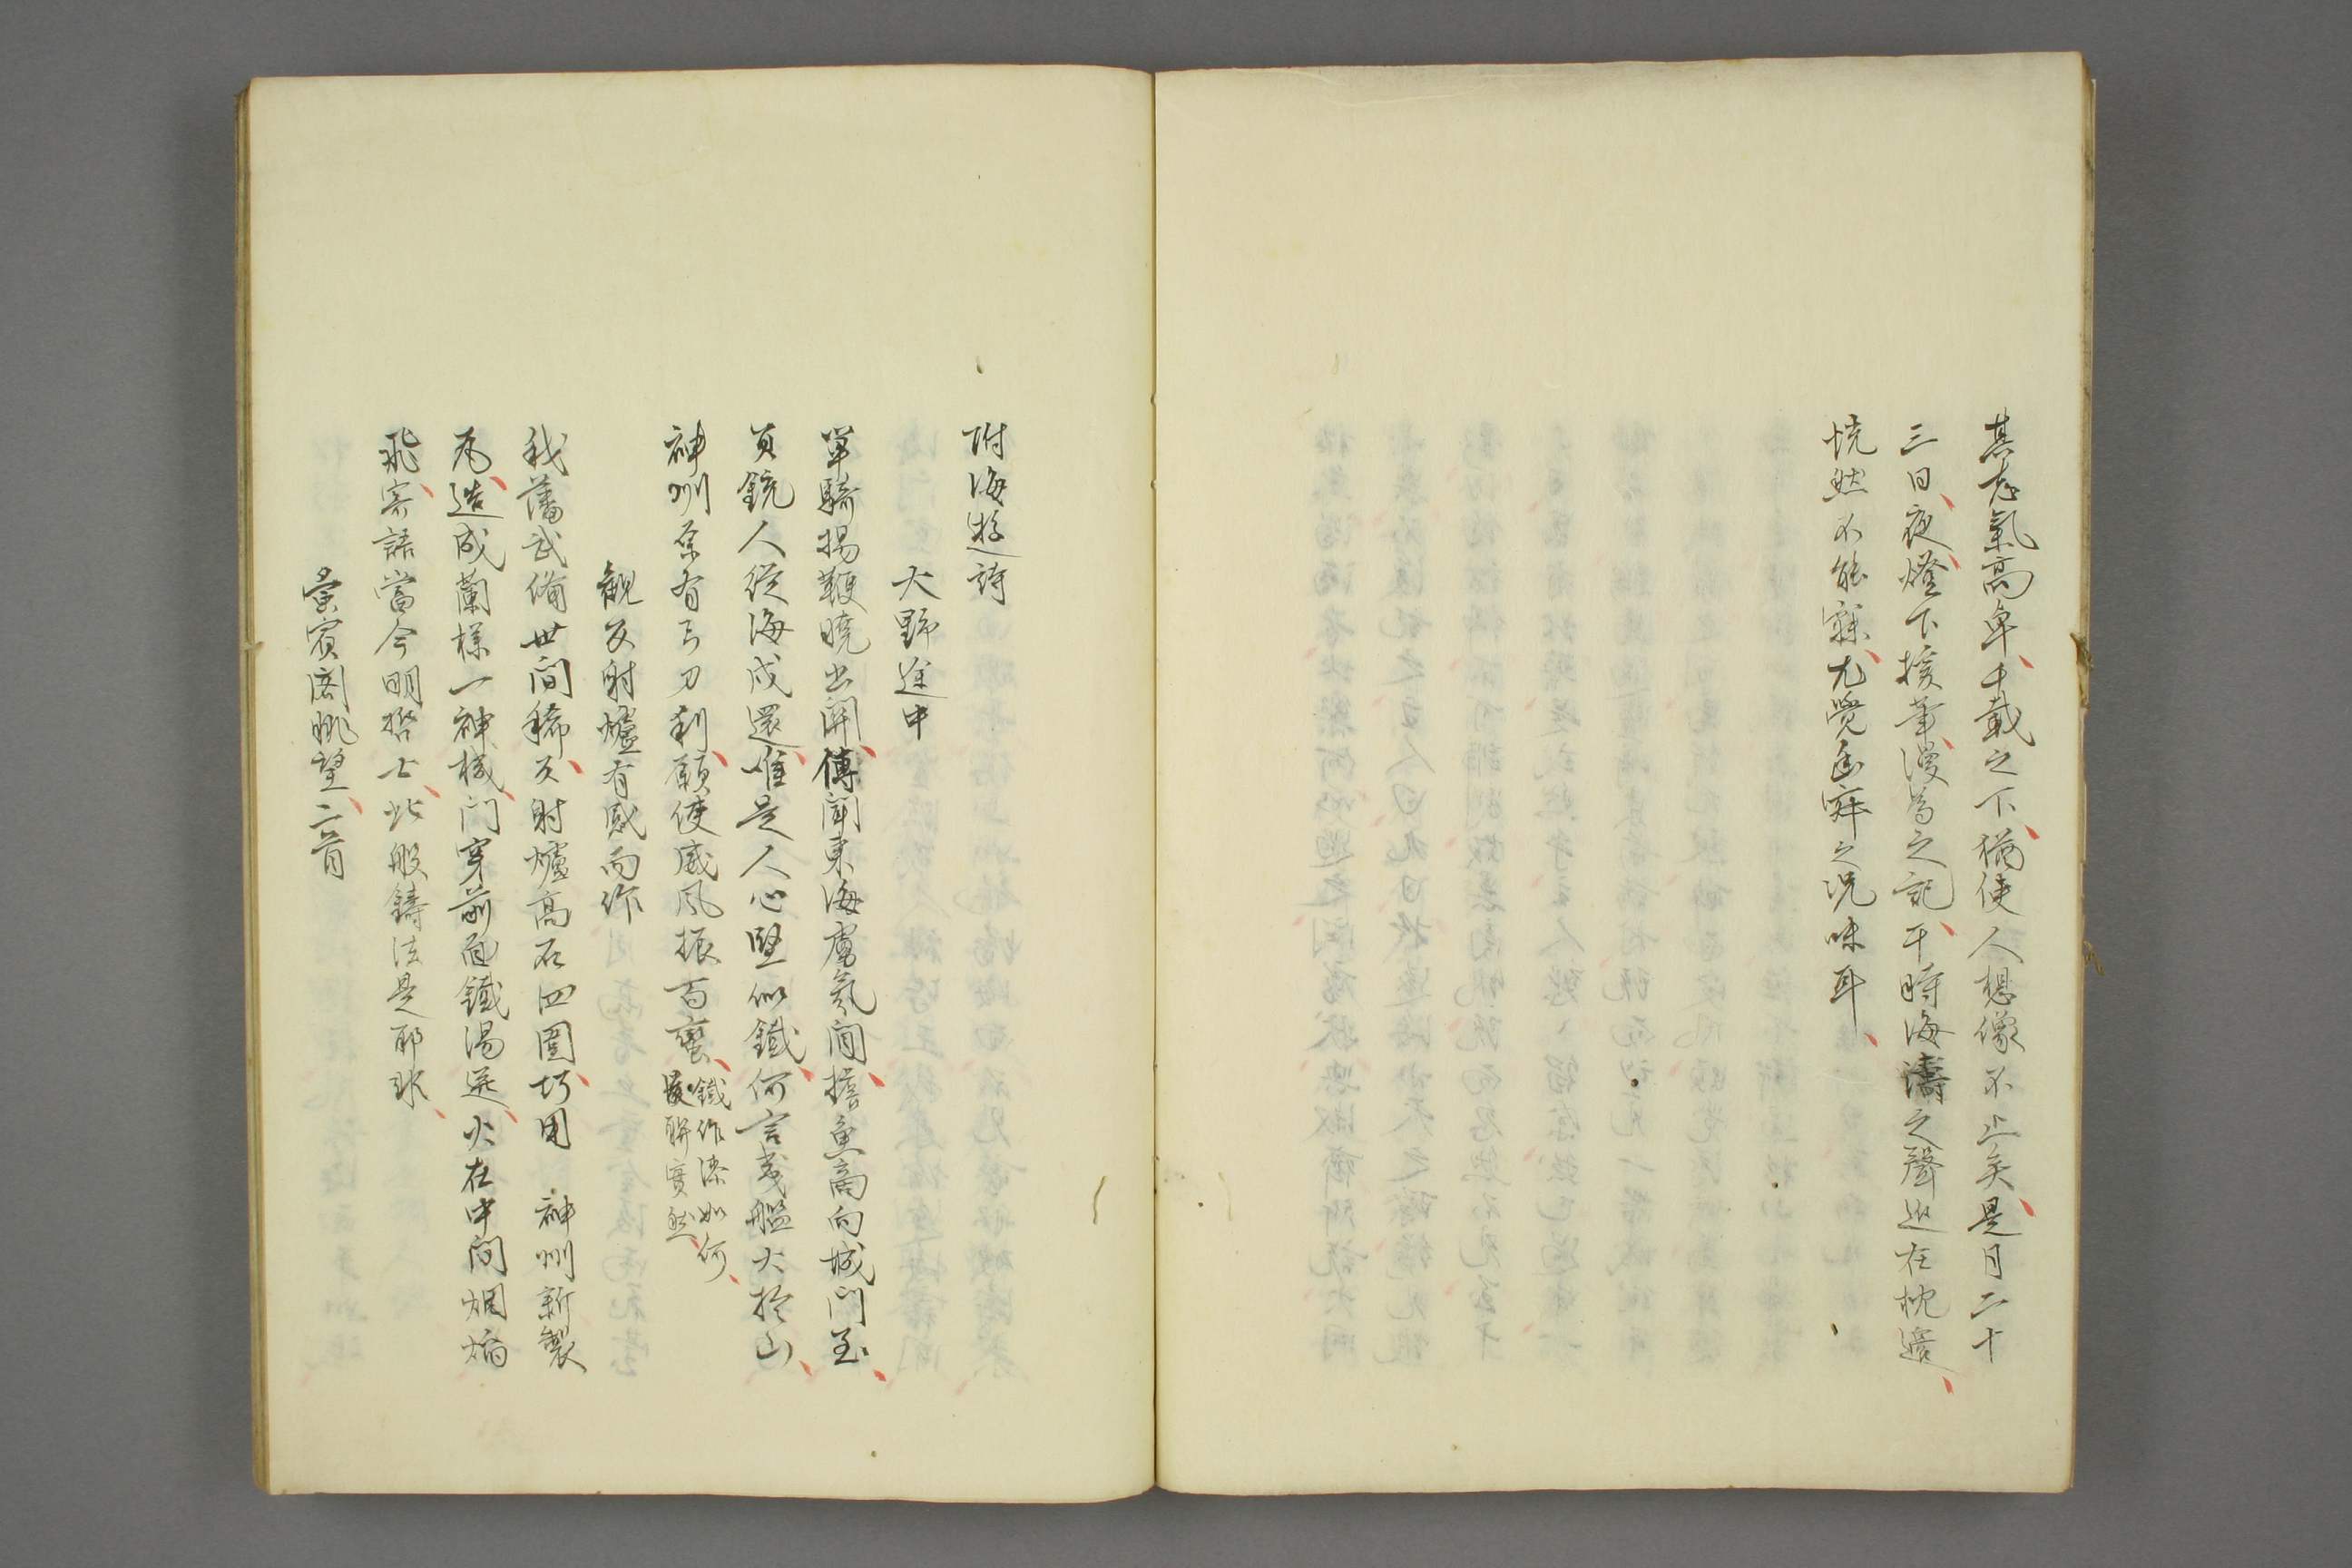 其志氣高卓千載之下猶使人想像不止矣是月二十
三日夜燈下援筆漫為之記干時海濤之聲近在枕邊
恍然不能寐尤覺孤寂之況味耳
附海游詩
大野途中
單騎揚鞭曉出關傳聞東海虜氛閒擔魚商向城門至
負銃人從海戍還唯是人心堅似鐵何言夷艦大於山
神州原有弓刀利願使威風振百蠻鐵作漆如何
最聯實然
觀反射爐有感而作
我藩武備世間稀反射爐高石四圍巧用 神州新製
瓦造成蘭樣一神機門穿前面鐵湯迸火在中間烟焔
飛寄語當今明哲士此般鑄法是耶非
賓閣眺望二首